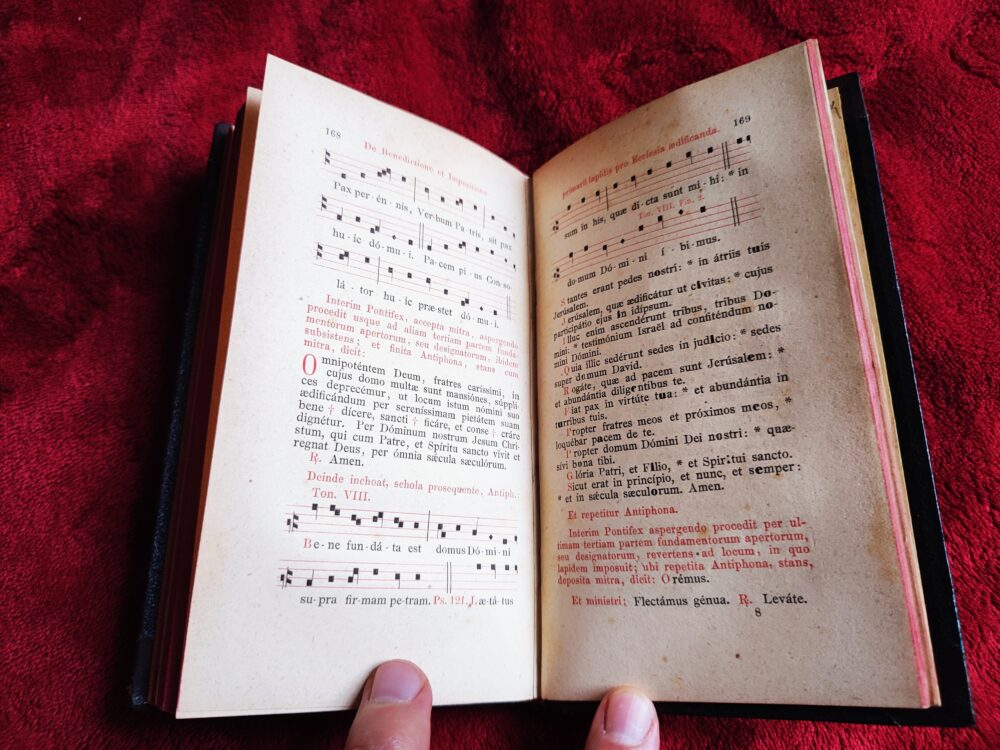 168
De Benedictione et Impositione
Pax per-én-nis, Ver-bum Pa-tris, sit pax
hu-ic dó-mu-i. Pa-cem pi-us Con-so-
lá-tor hu-ic præ-stet dó-mu-i.
Interim Pontifex, accepta mitra, aspergendo
procedit usque ad aliam tertiam partem funda-
mentorum apertorum, seu designatorum, ibidem
subsistens; et finita Antiphona, stans cum
mitra, dicit:
Omnipoténtem Deum, fratres caríssimi, in
cujus domo multæ sunt mansiónes, súppli-
ces deprecémur, ut locum istum nómini suo
ædificándum per sereníssimam pietátem suam
bene † dícere, sancti † ficáre, et conse † cráre
dignétur. Per Dóminum nostrum Jesum Chri-
stum, qui cum Patre, et Spíritu sancto vivit et
regnat Deus, per ómnia sǽcula sæculórum.
℟. Amen.
Deinde inchoat, schola prosequente, Antiph.:
Ton. VIII.
Be-ne fun-dá-ta est domus Dó-mi-ni
su-pra fir-mam pe-tram. Ps. 121. Læ-tá-tus
169
primarii lapidis pro Ecclesia ædificanda.
sum in his, quæ di-cta sunt mi-hi: * in
Ton. VIII. Fin. 2.
domum Dó-mi-ni í-bi-mus.
Stantes erant pedes nostri: * in átriis tuis
Jerúsalem.
Jerúsalem, quæ ædificátur ut cívitas: * cujus
participátio ejus in idípsum.
Illuc enim ascendérunt tribus, tribus Dó-
mini: * testimónium Israël ad confiténdum nó-
mini Dómini.
Quia illic sedérunt sedes in judício: * sedes
super domum David.
Rogáte, quæ ad pacem sunt Jerúsalem: *
et abundántia diligéntibus te.
Fiat pax in virtúte tua: * et abundántia in
túrribus tuis.
Propter fratres meos et próximos meos, *
loquébar pacem de te.
Propter domum Dómini Dei nostri: * quæ-
sívi bona tibi.
Glória Patri, et Fílio, * et Spirítui sancto.
Sicut erat in princípio, et nunc, et semper:
* et in sǽcula sæculórum. Amen.
Et repetitur Antiphona.
Interim Pontifex aspergendo procedit per ul-
timam tertiam partem fundamentorum apertorum,
seu designatorum, revertens ad locum, in quo
lapidem imposuit; ubi repetita Antiphona, stans,
deposita mitra, dicit: Orémus.
Et ministri: Flectámus génua. ℟. Leváte.
8